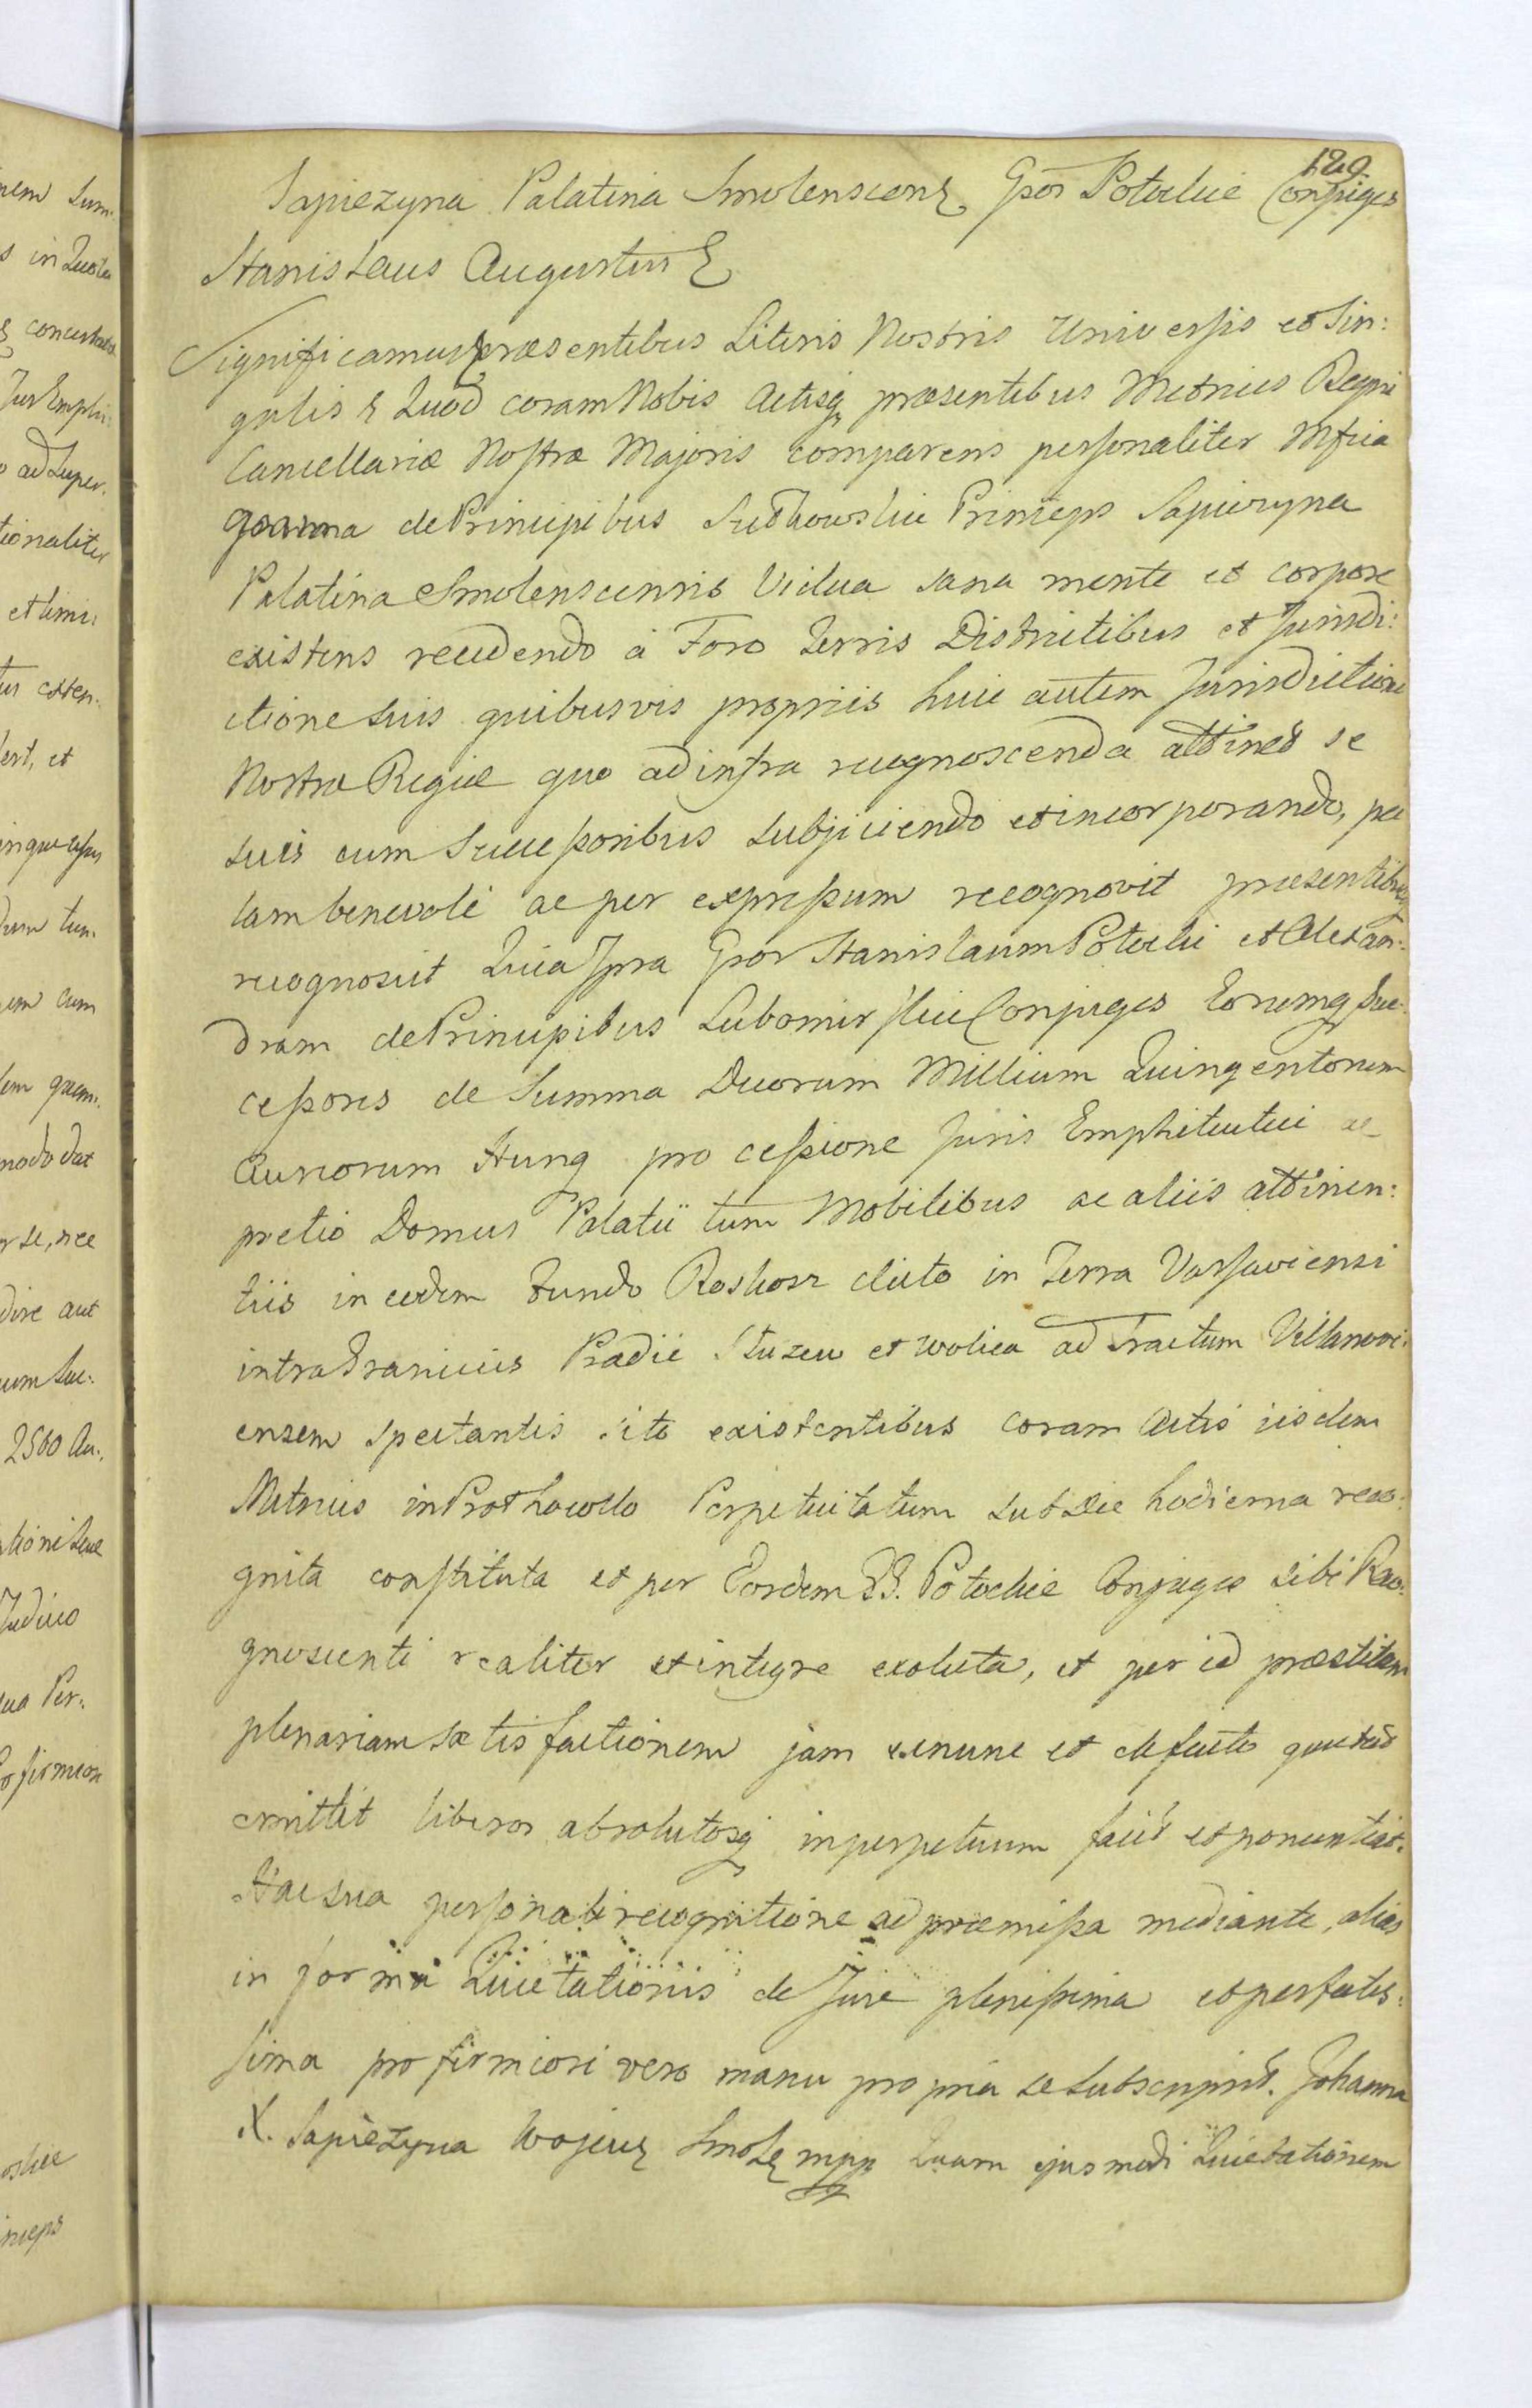 129
Sapiezyna Palatina Smolenscens Gsos Potockie Conjuges
Stanislaus Augustus &
Significamus præsentibus Literis Nostris Universis et Sin:
gulis & Quod coram Nobis Actisq præsentibus Metrices Regni
Cancellariæ Nostræ Majoris comparens personaliter Mfica
Joanna de Principibus Sułkowskie Princeps Sapiezyna
Palatina Smolenscensis Vidua sana mente et corpore
existens recedendo à Foro Terris Districtibus et Jurisdi:
ctione suis quibusvis propriis huic autem Jurisdictioni
Nostræ Regiæ quo ad infra recognoscenda attinet se
suis cum Successoribus subjiciendo et incorporando, pa
lam benevolè ac per expressum recognovit præsentibusq
recognoscit Quia Ipsa Gsos Stanislaum Potocki et Alexan:
dram de Principibus Lubomirskie Conjuges Eorumq Suc:
cessores de Summa Duorum Millium Quingentorum
Aureorum Hung pro cessione Juris Emphiteutici ac
pretio Domus Palatii tum Mobilibus ac aliis attinen:
tiis in eodem Fundo Roskosz dicto in Terra Varsaviensi
intra Granicies Prædii Służew et Wolica ad Tractum Villanovi:
ensem spectantis sito existentibus coram Actis iisdem
Metrices in Prothocollo Perpetuitatum sub die hodierna reco:
gnita constituta et per Eosdem GG. Potockie Conjuges sibi Reco:
gnoscenti realiter et integre exoluta, et per id præstitam
plenariam satisfactionem jam exnunc et de facto quietat
emittit liberos absolutosq in perpetuum facit et pronuntiat.
Hac sua personali recognitione ad præmissa mediante, alias
in forma Quietationis de Jure plenissima et perfectis:
sima pro firmiori vero manu propria se subscripsit. Johanna
X. Sapieżyna Wojew Smol mpp Quam ejusmodi Quietationem